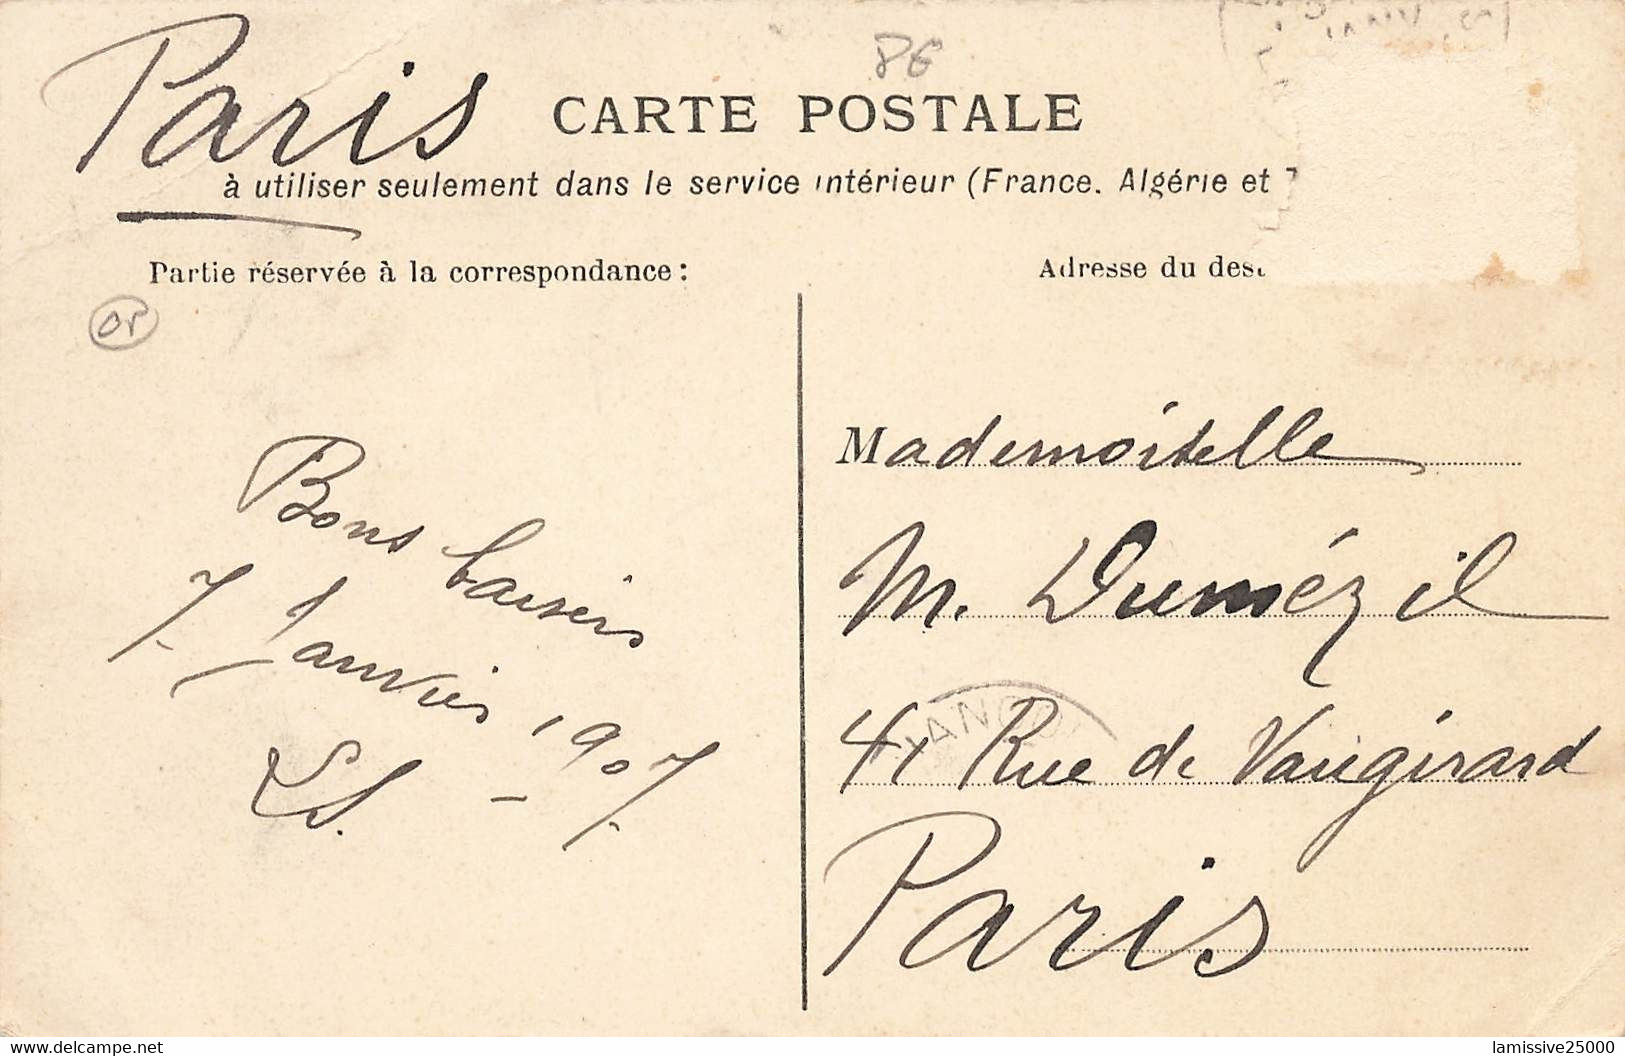 8€
Paris
CARTE POSTALE
à utiliser seulement dans le service intérieur (France. Algérie et
Partie réservée à la correspondance :
Adresse du
OP
Bons baisers
7 Janvier 1907
LS.
Mademoiselle
M. Dumézil
41 Rue de Vaugirard
Paris
lamissive25000